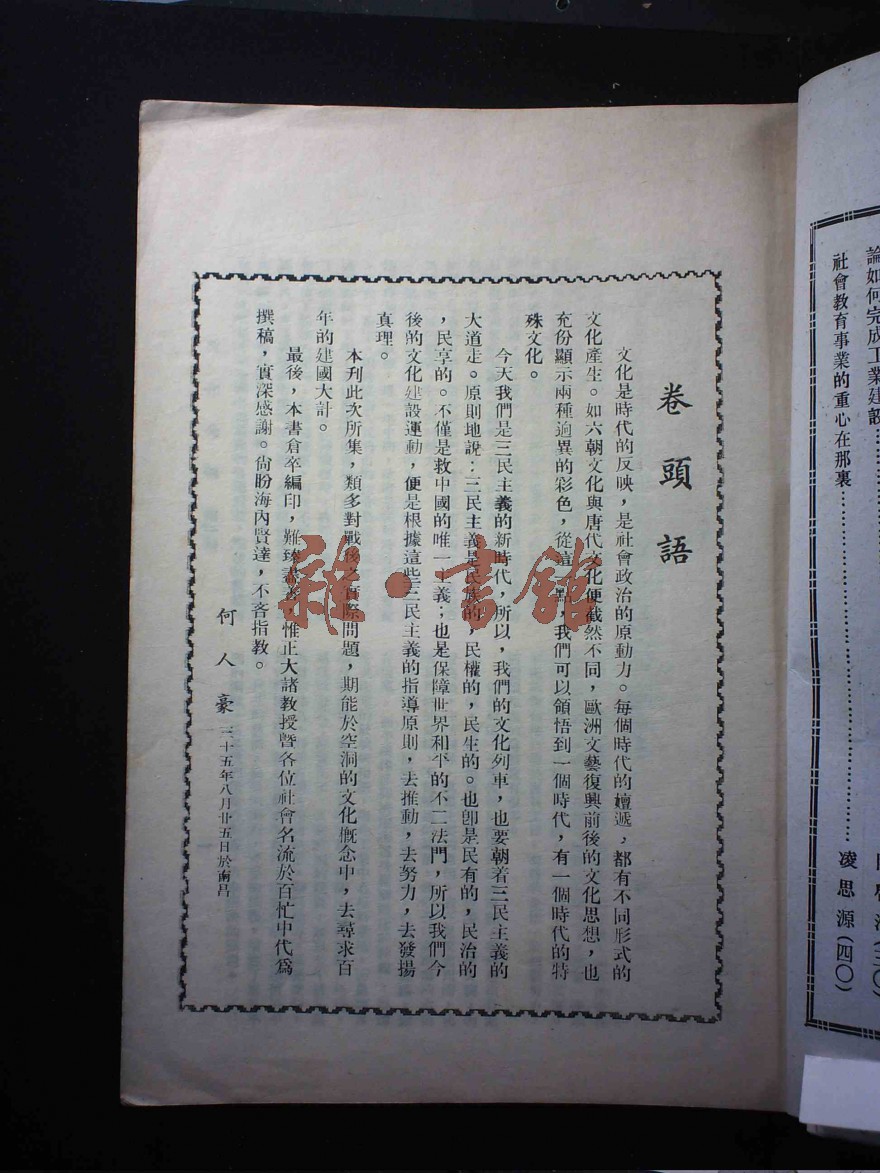 論如何完成工業建設
社會教育事業的重心在那裏
凌思源(四〇)
卷頭語
文化是時代的反映，是社會政治的原動力。每個時代的嬗遞，都有不同形式的
文化產生。如六朝文化與唐代文化便截然不同，歐洲文藝復興前後的文化思想，也
充份顯示兩種逈異的彩色，從這一點，我們可以領悟到一個時代，有一個時代的特
殊文化。
今天我們是三民主義的新時代，所以，我們的文化列車，也要朝着三民主義的
大道走。原則地說：三民主義是民族的，民權的，民生的。也卽是民有的，民治的
，民享的。不僅是救中國的唯一主義；也是保障世界和平的不二法門，所以我們今
後的文化建設運動，便是根據這些三民主義的指導原則，去推動，去努力，去發揚
真理。
本刊此次所集，類多對戰後之實際問題，期能於空洞的文化概念中，去尋求百
年的建國大計。
最後，本書倉卒編印，難臻盡善，惟正大諸教授曁各位社會名流於百忙中代爲
撰稿，實深感謝。尙盼海內賢達，不吝指教。
何人豪三十五年八月廿五日於南昌
雜·書館